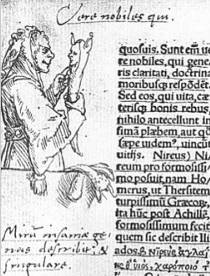 Vere nobiles qui.
quosuis. Sunt em̄ ue
te nobiles, qui gene
ris claritati, doctrina
moribusq; respōdēt.
Sed eos, qui uita, cæ
terisq; bonis rebus,
nihilo antecellunt in
fimā plæbem, aut
sæpe uidem⁹, uincunt
uitijs. Nireus) Ni
reum pro formosissi
mo posuit, nam Ho
merus, ut Thersitem
turpissimū
ita hūc post Achille
formosissimum fecit
sic describit Ili
Mirū insanæ ge
nus describit, &
singulare.